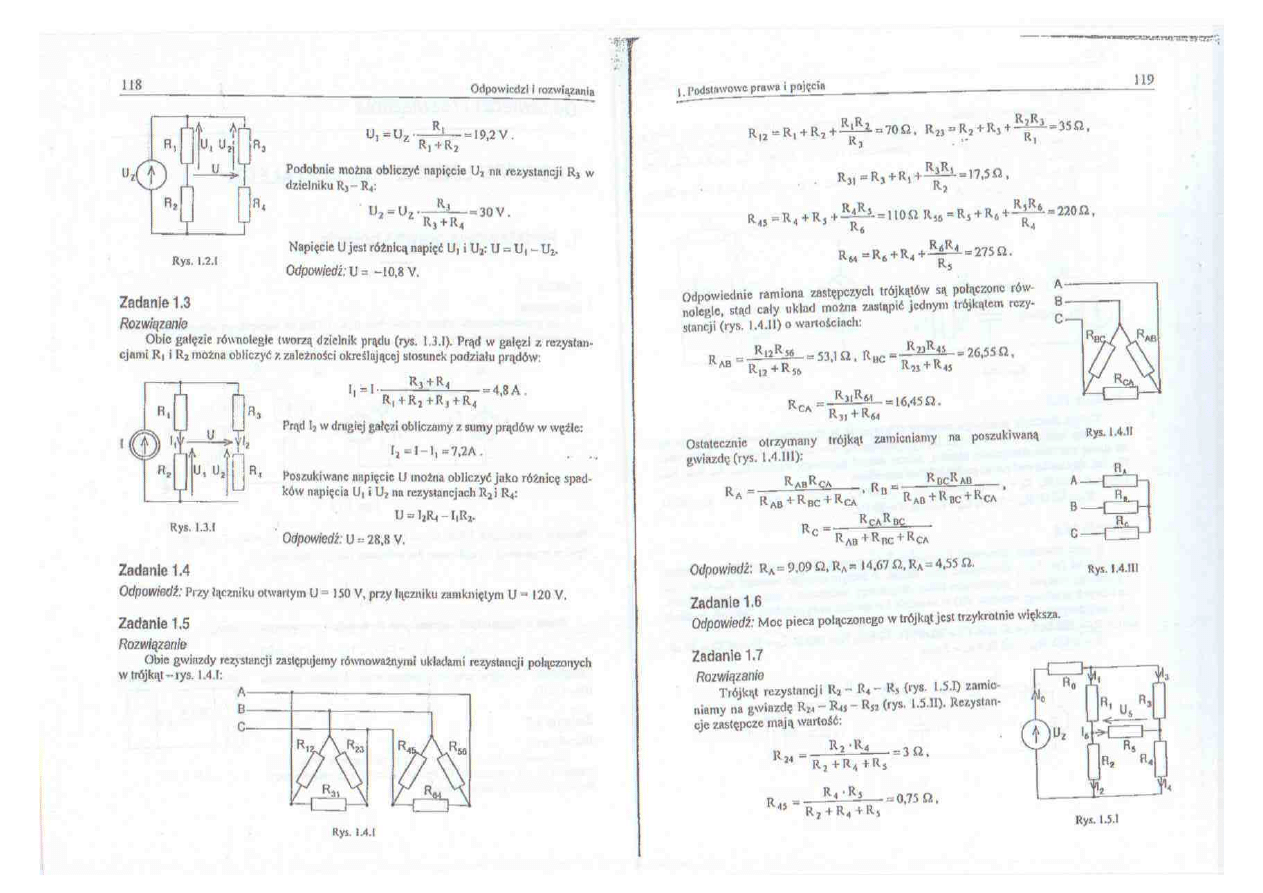 118
Odpowiedzi i rozwiązania
R₁ U₁ U₂ R₃
U_Z U
R₂ R₄
Rys. 1.2.I
U₁ = U_Z · R₁ / (R₁ + R₂) = 19,2 V.
Podobnie można obliczyć napięcie U₂ na rezystancji R₃ w
dzielniku R₃ – R₄:
U₂ = U_Z · R₃ / (R₃ + R₄) = 30 V.
Napięcie U jest różnicą napięć U₁ i U₂: U = U₁ – U₂.
Odpowiedź: U = –10,8 V.
Zadanie 1.3
Rozwiązanie
Obie gałęzie równoległe tworzą dzielnik prądu (rys. 1.3.I). Prąd w gałęzi z rezystan-
cjami R₁ i R₂ można obliczyć z zależności określającej stosunek podziału prądów:
R₁ R₃
I I₁ U I₂
R₂ U₁ U₂ R₄
Rys. 1.3.I
I₁ = I · (R₃ + R₄) / (R₁ + R₂ + R₃ + R₄) = 4,8 A.
Prąd I₂ w drugiej gałęzi obliczamy z sumy prądów w węźle:
I₂ = I – I₁ = 7,2A.
Poszukiwane napięcie U można obliczyć jako różnicę spad-
ków napięcia U₁ i U₂ na rezystancjach R₂ i R₄:
U = I₂R₄ – I₁R₂.
Odpowiedź: U = 28,8 V.
Zadanie 1.4
Odpowiedź: Przy łączniku otwartym U = 150 V, przy łączniku zamkniętym U = 120 V.
Zadanie 1.5
Rozwiązanie
Obie gwiazdy rezystencji zastępujemy równoważnymi układami rezystancji połączonych
w trójkąt – rys. 1.4.I:
A
B
C
R₁₂ R₂₃ R₄₅ R₅₆
R₃₁ R₆₄
Rys. 1.4.I
1. Podstawowe prawa i pojęcia
119
R₁₂ = R₁ + R₂ + R₁R₂ / R₃ = 70 Ω, R₂₃ = R₂ + R₃ + R₂R₃ / R₁ = 35 Ω,
R₃₁ = R₃ + R₁ + R₃R₁ / R₂ = 17,5 Ω,
R₄₅ = R₄ + R₅ + R₄R₅ / R₆ = 110 Ω R₅₆ = R₅ + R₆ + R₅R₆ / R₄ = 220 Ω,
R₆₄ = R₆ + R₄ + R₆R₄ / R₅ = 275 Ω.
Odpowiednie ramiona zastępczych trójkątów są połączone rów-
nolegle, stąd cały układ można zastąpić jednym trójkątem rezy-
stancji (rys. 1.4.II) o wartościach:
R_AB = R₁₂R₅₆ / (R₁₂ + R₅₆) = 53,1 Ω, R_BC = R₂₃R₄₅ / (R₂₃ + R₄₅) = 26,55 Ω,
R_CA = R₃₁R₆₄ / (R₃₁ + R₆₄) = 16,45 Ω.
A
B
C
R_BC R_AB
R_CA
Rys. 1.4.II
Ostatecznie otrzymany trójkąt zamieniamy na poszukiwaną
gwiazdę (rys. 1.4.III):
R_A = R_AB R_CA / (R_AB + R_BC + R_CA), R_B = R_BC R_AB / (R_AB + R_BC + R_CA),
R_C = R_CA R_BC / (R_AB + R_BC + R_CA)
A R_A
B R_B
C R_C
Rys. 1.4.III
Odpowiedź: R_A = 9,09 Ω, R_A = 14,67 Ω, R_A = 4,55 Ω.
Zadanie 1.6
Odpowiedź: Moc pieca połączonego w trójkąt jest trzykrotnie większa.
Zadanie 1.7
Rozwiązanie
Trójkąt rezystancji R₂ – R₄ – R₅ (rys. 1.5.I) zamie-
niamy na gwiazdę R₂₄ – R₄₅ – R₅₂ (rys. 1.5.II). Rezystan-
cje zastępcze mają wartość:
R₂₄ = R₂ · R₄ / (R₂ + R₄ + R₅) = 3 Ω,
R₄₅ = R₄ · R₅ / (R₂ + R₄ + R₅) = 0,75 Ω,
R₀ I₁ I₃
I₀ R₁ U₅ R₃
U_Z I₅ R₅
R₂ R₄
I₂ I₄
Rys. 1.5.I